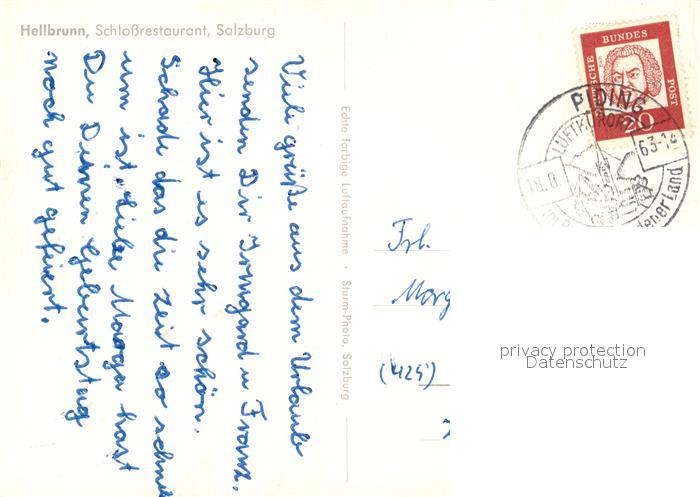 Hellbrunn, Schloßrestaurant, Salzburg
Viele grüße aus dem Urlaub
senden Dir Irmgard u Franz.
Hier ist es sehr schön.
Schade das die Zeit so schnell
um ist. Liebe Marga hast
Du Deinen Geburtstag
noch gut gefeiert.
Echte farbige Luftaufnahme · Sturm-Photo, Salzburg
DEUTSCHE BUNDESPOST
20
PIDING
LUFTKURORT
18.8.
63-16
Frl.
Marg
privacy protection
Datenschutz